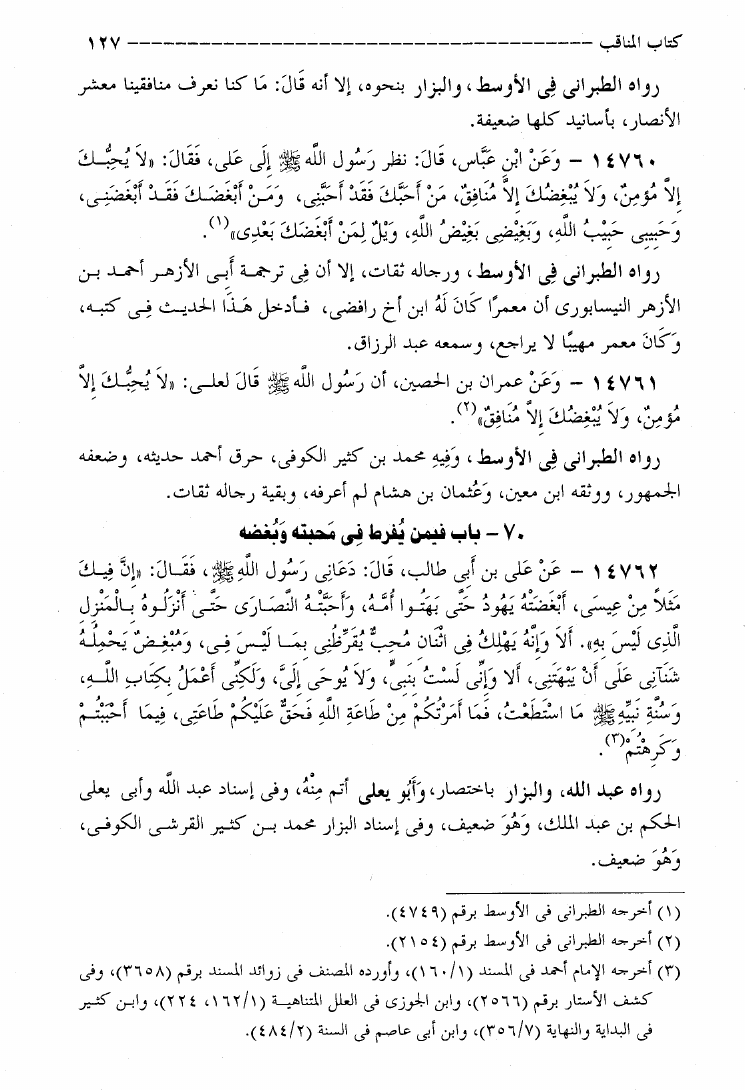 كتاب المناقب ــــــــــــــــــــــــــــــــــــــــ ١٢٧
رواه الطبرانى فِى الأوسط، والبزار بنحوه، إلا أنه قَالَ: مَا كنا نعرف منافقينا معشر
الأنصار، بأسانيد كلها ضعيفة.
١٤٧٦٠ – وَعَنْ ابْنِ عَبَّاس، قَالَ: نظر رَسُول الله ﷺ إِلَى عَلى، فَقَالَ: «لاَ يُحِبُّـكَ
إِلاَّ مُؤمِنٌ، وَلاَ يُبْغِضُكَ إِلاَّ مُنَافِقٌ، مَنْ أَحَبَّكَ فَقَدْ أَحَبَّنِى، وَمَـنْ أَبْغَضَـكَ فَقَـدْ أَبْغَضَنِـى،
وَحَبِيبِى حَبِيْبُ اللَّهِ، وَبَغِيْضِى بَغِيْضُ اللَّهِ، وَيْلٌ لِمَنْ أَبْغَضَكَ بَعْدِى»(١).
رواه الطبرانى فِى الأوسط، ورجاله ثقات، إلا أن فِى ترجمـة أَبِـى الأزهـر أحمـد بـن
الأزهر النيسابورى أن معمرًا كَانَ لَهُ ابن أخ رافضى، فـأدخل هَـذَا الحديـث فِـى كتبـه،
وَكَانَ معمر مهيبًا لا يراجع، وسمعه عبد الرزاق.
١٤٧٦١ – وَعَنْ عمران بن الحصين، أن رَسُول الله ﷺ قَالَ لعلـى: «لاَ يُحِبُّـكَ إِلاَّ
مُؤمِنٌ، وَلاَ يُبْغِضُكَ إِلاَّ مُنَافِقٌ»(٢).
رواه الطبرانى فِى الأوسط، وَفِيهِ محمد بن كثير الكوفى، حرق أحمد حديثه، وضعفه
الجمهور، ووثقه ابن معين، وَعُثمان بن هشام لم أعرفه، وبقية رجاله ثقات.
٧٠ – باب فيمن يُفرط فِى مَحبته وَبُغضه
١٤٧٦٢ – عَنْ عَلى بن أَبِي طالب، قَالَ: دَعَانِى رَسُول اللَّهِ ﷺ، فَقَـالَ: «إِنَّ فِيـكَ
مَثَلاً مِنْ عِيسَى، أَبْغَضَتْهُ يَهُودُ حَتَّى بَهَتُـوا أُمَّـهُ، وَأَحَبَّتْـهُ النَّصَـارَى حَتَّـى أَنْزَلُـوهُ بِـالْمَنْزِلِ
الَّذِى لَيْسَ بِهِ». أَلاَ وَإِنَّهُ يَهْلِكُ فِى اثْنَانِ مُحِبٌّ يُقَرِّظُنِى بِمَـا لَيْـسَ فِـى، وَمُبْغِـضٌ يَحْمِلُـهُ
شَنَآنِى عَلَى أَنْ يَبْهَتَنِى، أَلا وَإِنِّى لَسْتُ بِنَبِىٍّ، وَلاَ يُوحَى إِلَىَّ، وَلَكِنِّى أَعْمَلُ بِكِتَابِ اللَّـهِ،
وَسُنَّةِ نَبِيِّهِ ﷺ مَا اسْتَطَعْتُ، فَمَا أَمَرْتُكُمْ مِنْ طَاعَةِ اللَّهِ فَحَقٌّ عَلَيْكُمْ طَاعَتِى، فِيمَا أَحْبَبْتُـمْ
وَكَرِهْتُمْ(٣).
رواه عبد الله، والبزار باختصار، وَأَبُو يعلى أتم مِنْهُ، وفى إسناد عبد اللَّه وأبى يعلى
الحكم بن عبد الملك، وَهُوَ ضعيف، وفى إسناد البزار محمد بـن كثـير القرشـى الكوفـى،
وَهُوَ ضعيف.
(١) أخرجه الطبرانى فى الأوسط برقم (٤٧٤٩).
(٢) أخرجه الطبرانى فى الأوسط برقم (٢١٥٤).
(٣) أخرجه الإمام أحمد فى المسند (١٦٠/١)، وأورده المصنف فى زوائد المسند برقم (٣٦٥٨)، وفى
كشف الأستار برقم (٢٥٦٦)، وابن الجوزى فى العلل المتناهيـة (١٦٢/١، ٢٢٤)، وابـن كثـير
فى البداية والنهاية (٣٥٦/٧)، وابن أبى عاصم فى السنة (٤٨٤/٢).